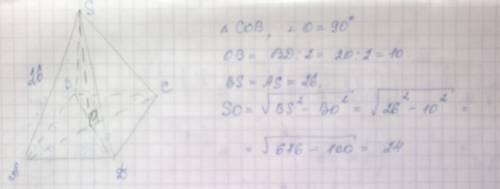 S
26
B
C
O
A
D
△ COB, ∠O = 90°
OB = BD : 2 = 20 : 2 = 10
BS = AS = 26
SO = √BS² - BO² = √26² - 10² =
= √676 - 100 = 24